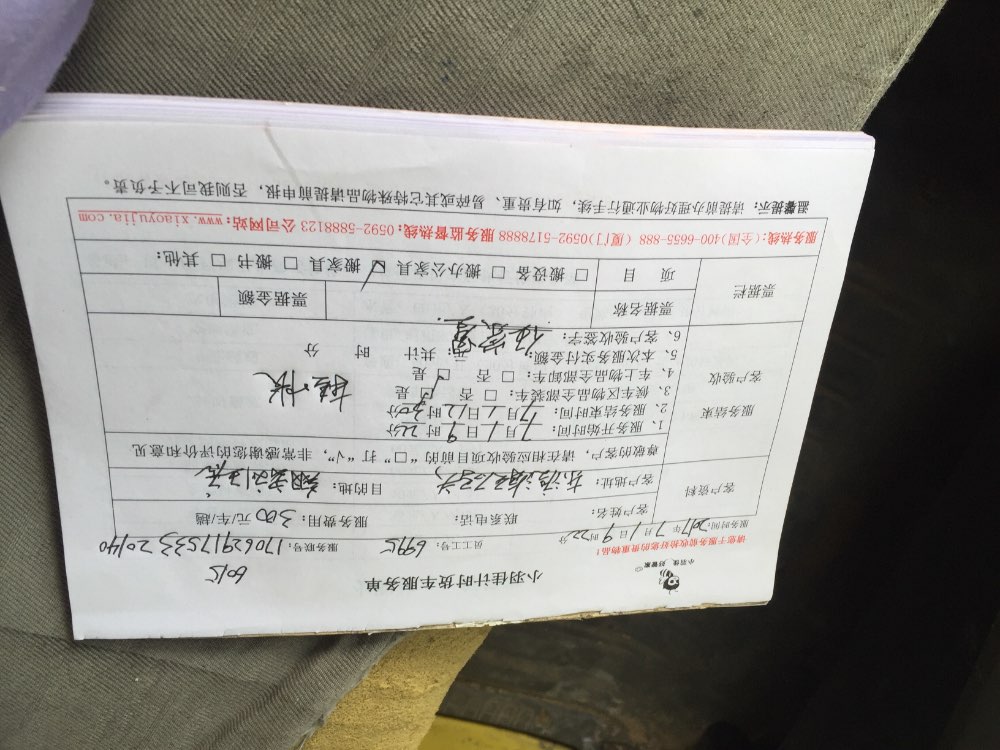 小羽佳 好管家
小羽佳计时货车服务单
6015
请您于服务前收拾好您的贵重物品！
员工工号：6995 服务联号：1706291753320140
服务时间：2017年7月1日9时22分
客户资料
客户姓名： 联系电话： 服务费用：300元/车/趟
客户地址： 目的地：
服务结束 客户验收
尊敬的客户，请在相应验收项目前的“□”打“√”，非常感谢您的评价和意见
1、服务开始时间：7月1日9时22分
2、服务结束时间：7月1日12时30分
3、候车区物品全部装车：□否 ☑是
4、车上物品全部卸车：□否 ☑是
5、本次服务实付金额： 元；共计： 时 分
6、客户验收签字：
票据栏
票据名称 票据金额
项目 □搬设备 □搬办公家具 ☑搬家具 □搬书 □其他：
服务热线：(全国)400-6655-888 (厦门)0592-5178888 服务监督热线：0592-5888123 公司网站：www.xiaoyujia.com
温馨提示：请提前办理好物业通行手续，如有贵重、易碎或其它特殊物品请提前申报，否则我司不予负责。